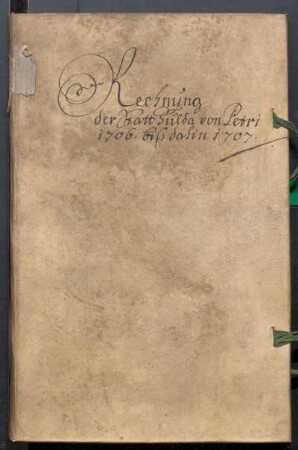 Rechnung
der Statt Fulda von Petri
1706. biß dahin 1707.